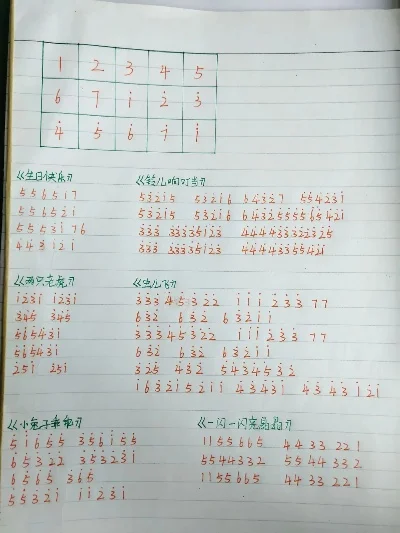 1 2 3 4 5
6 7 i 2̇ 3̇
4̇ 5̇ 6̇ 7̇ i
《生日快乐》
5 5 6 5 i 7
5 5 6 5 2̇ i
5 5 5̇ 3̇ i 7 6
4̇ 4̇ 3̇ i 2̇ i
《铃儿响叮当》
5 3̇ 2̇ i 5 5 3̇ 2̇ i 6 6 4̇ 3̇ 2̇ 7 5̇ 5̇ 4̇ 2̇ 3̇ i
5 3̇ 2̇ i 5 5 3̇ 2̇ i 6 6 4̇ 3̇ 2̇ 5̇ 5̇ 5̇ 5̇ 6̇ 5̇ 4̇ 2̇ i
3̇ 3̇ 3̇ 3̇ 3̇ 3̇ 3̇ 5̇ i 2̇ 3̇ 4̇ 4̇ 4̇ 4̇ 3̇ 3̇ 3̇ 2̇ 2̇ 3̇ 2̇ 5̇
3̇ 3̇ 3̇ 3̇ 3̇ 3̇ 3̇ 5̇ i 2̇ 3̇ 4̇ 4̇ 4̇ 4̇ 3̇ 3̇ 5̇ 5̇ 4̇ 2̇ i
《两只老虎》
i 2̇ 3̇ i i 2̇ 3̇ i
3̇ 4̇ 5̇ 3̇ 4̇ 5̇
5̇ 6̇ 5̇ 4̇ 3̇ i
5̇ 6̇ 5̇ 4̇ 3̇ i
2̇ 5 i 2̇ 5 i
《虫儿飞》
3̇ 3̇ 3̇ 4̇ 5̇ 3̇ 2̇ 2̇ i i i 2̇ 3̇ 3̇ 7 7
6 3̇ 2̇ 6 3̇ 2̇ 6 3̇ 2̇ i i
3̇ 3̇ 3̇ 4̇ 5̇ 3̇ 2̇ 2̇ i i i 2̇ 3̇ 3̇ 7 7
6 3̇ 2̇ 6 3̇ 2̇ 6 3̇ 2̇ i i
3̇ 2̇ 5̇ 4̇ 3̇ 2̇ 5̇ 4̇ 3̇ 4̇ 5̇ 3̇ 2̇
i 6 3̇ 2̇ i 5 2̇ i i 4̇ 3̇ 4̇ 3̇ i 4̇ 3̇ 4̇ 3̇ i 2̇ i
《小兔子乖乖》
5̇ i 6̇ 5̇ 5̇ 3̇ 5̇ 6̇ i 5̇ 5̇
6̇ 5̇ 3̇ 2̇ 2̇ 3̇ 5̇ 3̇ 2̇ 3̇ i
6̇ 5̇ 6̇ 5̇ 3̇ 6̇ 5̇
5̇ 5̇ 3̇ 2̇ i i i 2̇ 3̇ i
《一闪一闪亮晶晶》
1 1 5 5 6 6 5 4 4 3 3 2 2 1
5 5 4 4 3 3 2 5 5 4 4 3 3 2
1 1 5 5 6 6 5 4 4 3 3 2 2 1